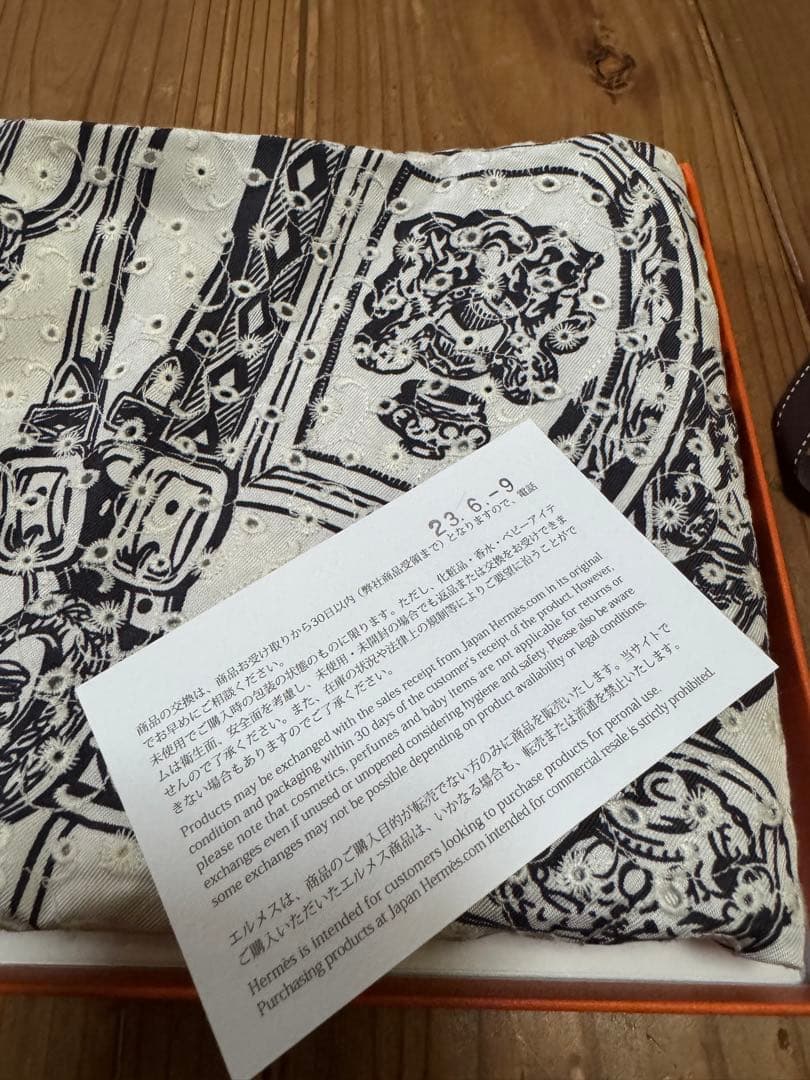 23.6.-9
商品の交換は、商品お受け取りから30日以内（弊社商品受領まで）となりますので、電話
でお早めにご相談ください。
未使用でご購入時の包装の状態のものに限ります。ただし、化粧品・香水・ベビーアイテ
ムは衛生面、安全面を考慮し、未使用・未開封の場合でも返品または交換をお受けできま
せんので了承ください。また、在庫の状況や法律上の規制等によりご要望に沿うことがで
きない場合もありますのでご了承ください。
Products may be exchanged with the sales receipt from Japan Hermès.com in its original
condition and packaging within 30 days of the customer's receipt of the product. However,
please note that cosmetics, perfumes and baby items are not applicable for returns or
exchanges even if unused or unopened considering hygiene and safety. Please also be aware
some exchanges may not be possible depending on product availability or legal conditions.
エルメスは、商品のご購入目的が転売でない方のみに商品を販売いたします。当サイトで
ご購入いただいたエルメス商品は、いかなる場合も、転売または流通を禁止いたします。
Hermès is intended for customers looking to purchase products for peronal use.
Purchasing products at Japan Hermès.com intended for commercial resale is strictly prohibited.